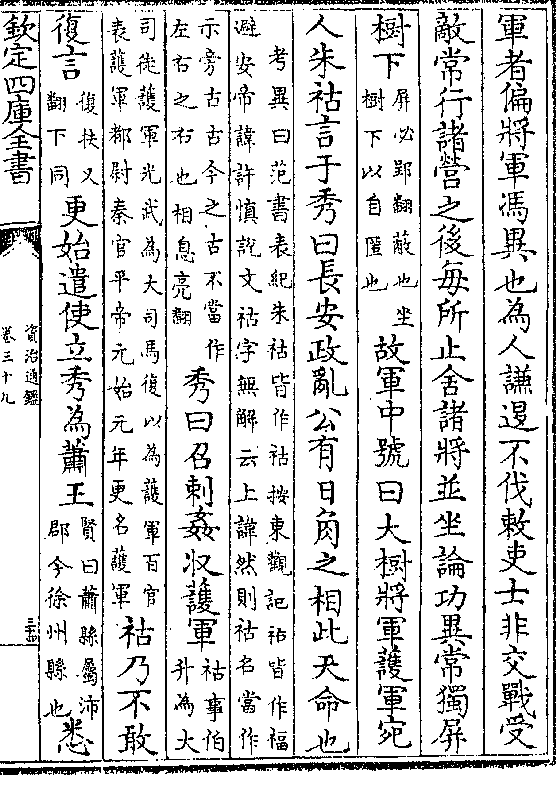 軍者偏將軍馮異也為人謙退不伐敕吏士非交戰受
敵常行諸營之後每所止舍諸將並坐論功異常獨屏
樹下屏必郢翻蔽也坐樹下以自匿也故軍中號曰大樹將軍護軍宛
人朱祜言于秀曰長安政亂公有日角之相此天命也
考異曰范書表紀朱祜皆作祜按東觀記祜皆作福
避安帝諱許慎說文祜字無解云上諱然則祜名當作
示旁古古今之古不當作左右之右也相息亮翻秀曰召刺姦收護軍祜事伯升為大
司徒護軍光武為大司馬復以為護軍百官表護軍都尉秦官平帝元始元年更名護軍祜乃不敢
復言復扶又翻下同更始遣使立秀為蕭王賢曰蕭縣屬沛郡今徐州縣也悉
欽定四庫全書
資治通鑑
卷三十九